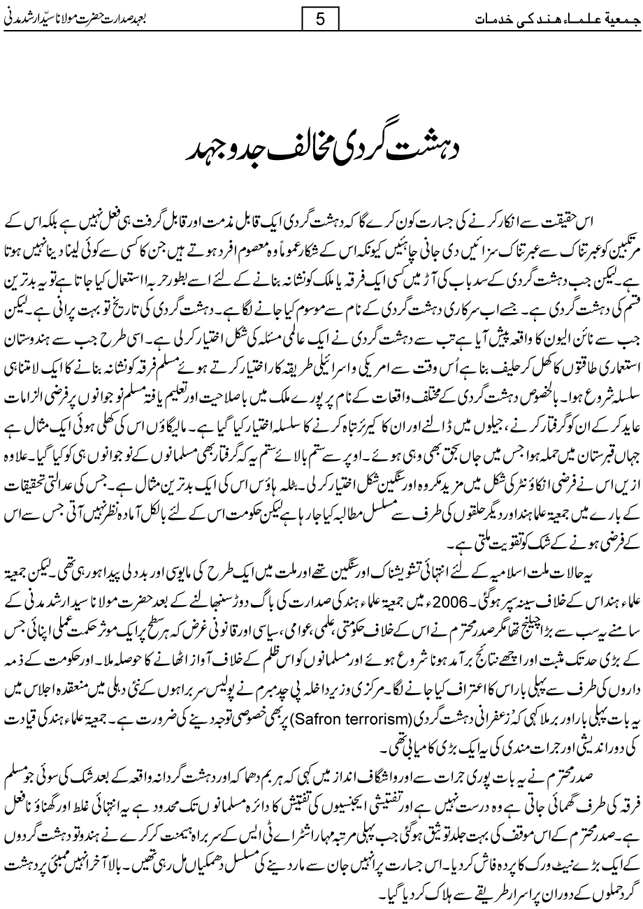 جمعیۃ علماء ھند کی خدمات
5
بعہد صدارت حضرت مولانا سیّد ارشد مدنی
دہشت گردی مخالف جدوجہد
اس حقیقت سے انکار کرنے کی جسارت کون کرے گا کہ دہشت گردی ایک قابل مذمت اور قابل گرفت ہی فعل نہیں ہے بلکہ اس کے
مرتکبین کو عبرتناک سے عبرتناک سزائیں دی جانی چاہئیں کیونکہ اس کے شکار عموماً وہ معصوم افراد ہوتے ہیں جن کا کسی سے کوئی لینا دینا نہیں ہوتا
ہے۔لیکن جب دہشت گردی کے سدباب کی آڑ میں کسی ایک فرقہ یا ملک کو نشانہ بنانے کے لئے اسے بطور حربہ استعمال کیا جاتا ہے تو یہ بدترین
قسم کی دہشت گردی ہے۔ جسے اب سرکاری دہشت گردی کے نام سے موسوم کیا جانے لگا ہے۔دہشت گردی کی تاریخ تو بہت پرانی ہے۔لیکن
جب سے نائن الیون کا واقعہ پیش آیا ہے تب سے دہشت گردی نے ایک عالمی مسئلہ کی شکل اختیار کرلی ہے۔ اسی طرح جب سے ہندوستان
استعماری طاقتوں کا کھل کر حلیف بنا ہے اُس وقت سے امریکی و اسرائیلی طریقہ کار اختیار کرتے ہوئے مسلم فرقہ کو نشانہ بنانے کا ایک لامتناہی
سلسلہ شروع ہوا۔ بالخصوص دہشت گردی کے مختلف واقعات کے نام پر پورے ملک میں باصلاحیت اور تعلیم یافتہ مسلم نوجوانوں پر فرضی الزامات
عاید کرکے ان کو گرفتار کرنے، جیلوں میں ڈالنے اور ان کا کیرئر تباہ کرنے کا سلسلہ اختیار کیا گیا ہے۔ مالیگاؤں اس کی کھلی ہوئی ایک مثال ہے
جہاں قبرستان میں حملہ ہوا جس میں جاں بحق بھی وہی ہوئے۔ اوپر سے ستم بالائے ستم یہ کہ گرفتار بھی مسلمانوں کے نوجوانوں ہی کو کیا گیا۔علاوہ
ازیں اس نے فرضی انکاؤنٹر کی شکل میں مزید مکروہ اور سنگین شکل اختیار کرلی۔ بٹلہ ہاؤس اس کی ایک بدترین مثال ہے۔ جس کی عدالتی تحقیقات
کے بارے میں جمعیۃ علماء ہند اور دیگر حلقوں کی طرف سے مسلسل مطالبہ کیا جارہا ہے لیکن حکومت اس کے لئے بالکل آمادہ نظر نہیں آتی جس سے اس
کے فرضی ہونے کے شک کو تقویت ملتی ہے۔
یہ حالات ملت اسلامیہ کے لئے انتہائی تشویشناک اور سنگین تھے اور ملت میں ایک طرح کی مایوسی اور بددلی پیدا ہورہی تھی۔لیکن جمعیۃ
علماء ہند اس کے خلاف سینہ سپر ہوگئی۔2006ء میں جمعیۃ علماء ہند کی صدارت کی باگ دوڑ سنبھالنے کے بعد حضرت مولانا سید ارشد مدنی کے
سامنے یہ سب سے بڑا چیلنج تھا مگر صدر محترم نے اس کے خلاف حکومتی، علمی، عوامی، سیاسی اور قانونی غرض کہ ہر سطح پر ایک موثر حکمت عملی اپنائی جس
کے بڑی حد تک مثبت اور اچھے نتائج برآمد ہونا شروع ہوئے اور مسلمانوں کو اس ظلم کے خلاف آواز اٹھانے کا حوصلہ ملا۔ اور حکومت کے ذمہ
داروں کی طرف سے پہلی بار اس کا اعتراف کیا جانے لگا۔ مرکزی وزیر داخلہ پی چدمبرم نے پولیس سربراہوں کے نئی دہلی میں منعقدہ اجلاس میں
یہ بات پہلی بار اور برملا کہی کہ 'زعفرانی دہشت گردی (Safron terrorism) پر بھی خصوصی توجہ دینے کی ضرورت ہے۔ جمعیۃ علماء ہند کی قیادت
کی دوراندیشی اور جرات مندی کی یہ ایک بڑی کامیابی تھی۔
صدر محترم نے یہ بات پوری جرات سے اور واشگاف انداز میں کہی کہ ہر بم دھماکہ اور دہشت گردانہ واقعہ کے بعد شک کی سوئی جو مسلم
فرقہ کی طرف گھمائی جاتی ہے وہ درست نہیں ہے اور تفتیشی ایجنسیوں کی تفتیش کا دائرہ مسلمانوں تک محدود ہے یہ انتہائی غلط اور گھناؤنا فعل
ہے۔صدر محترم کے اس موقف کی بہت جلد توثیق ہوگئی جب پہلی مرتبہ مہاراشٹر اے ٹی ایس کے سربراہ ہیمنت کرکرے نے ہندو تو دہشت گردوں
کے ایک بڑے نیٹ ورک کا پردہ فاش کردیا۔ اس جسارت پر انہیں جان سے مار دینے کی مسلسل دھمکیاں مل رہی تھیں۔ بالآخر انہیں ممبئی پر دہشت
گرد حملوں کے دوران پراسرار طریقے سے ہلاک کردیا گیا۔